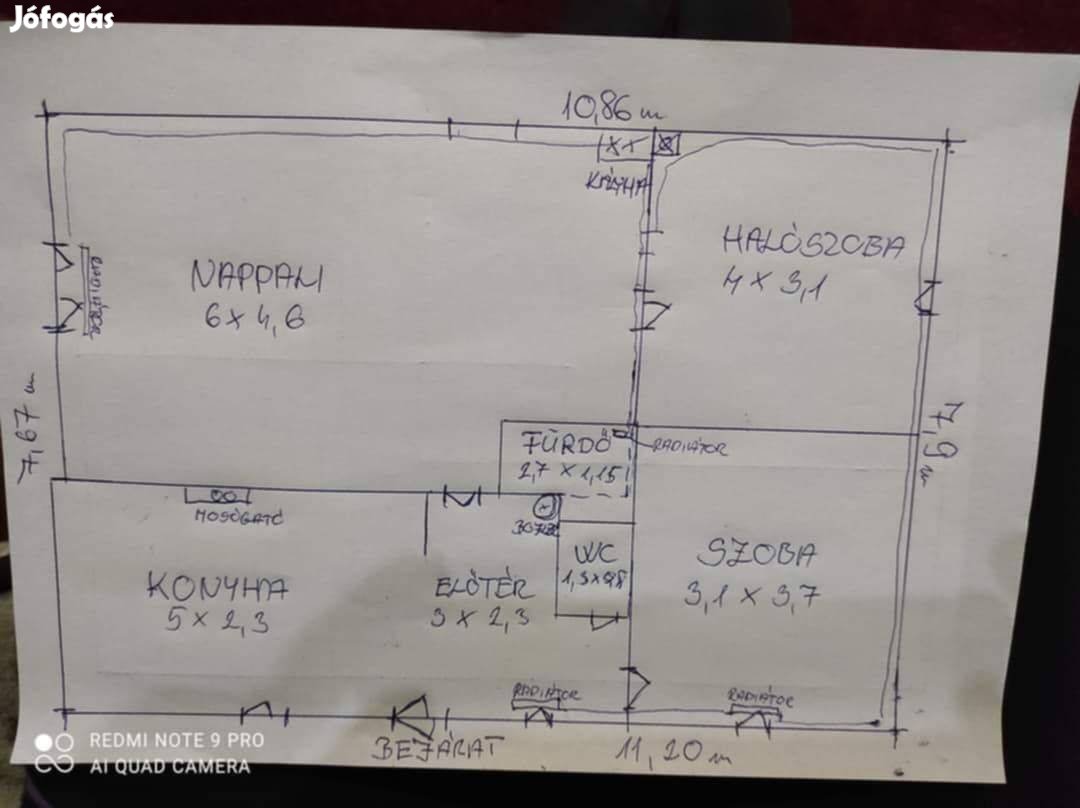 Jófogás
10,86 m
KÁLYHA
HALÓSZOBA
4 x 3,1
NAPPALI
6 x 4,6
RADIÁTOR
7,67 m
7,9 m
FÜRDŐ
2,7 x 1,15
RADIÁTOR
MOSOGATÓ
WC
SZOBA
3,1 x 3,7
KONYHA
5 x 2,3
ELŐTÉR
3 x 2,3
RADIÁTOR
RADIÁTOR
BEJÁRAT
11,20 m
REDMI NOTE 9 PRO
AI QUAD CAMERA